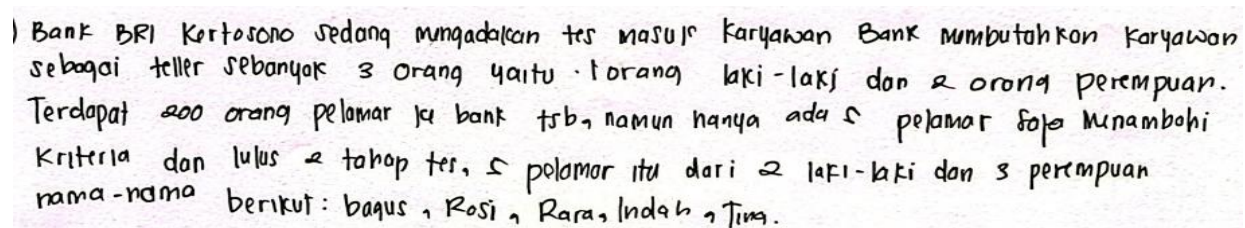 ) Bank BRI Kertosono sedang mengadakan tes masuk Karyawan Bank membutuhkan Karyawan
sebagai teller sebanyak 3 orang yaitu . 1 orang laki-laki dan 2 orang perempuan.
Terdapat 200 orang pelamar ke bank tsb, namun hanya ada 5 pelamar saja menambohi
Kriteria dan lulus 2 tahap tes, 5 pelamar itu dari 2 laki-laki dan 3 perempuan
nama-nama berikut : bagus, Rosi, Rara, Indah, Tina.